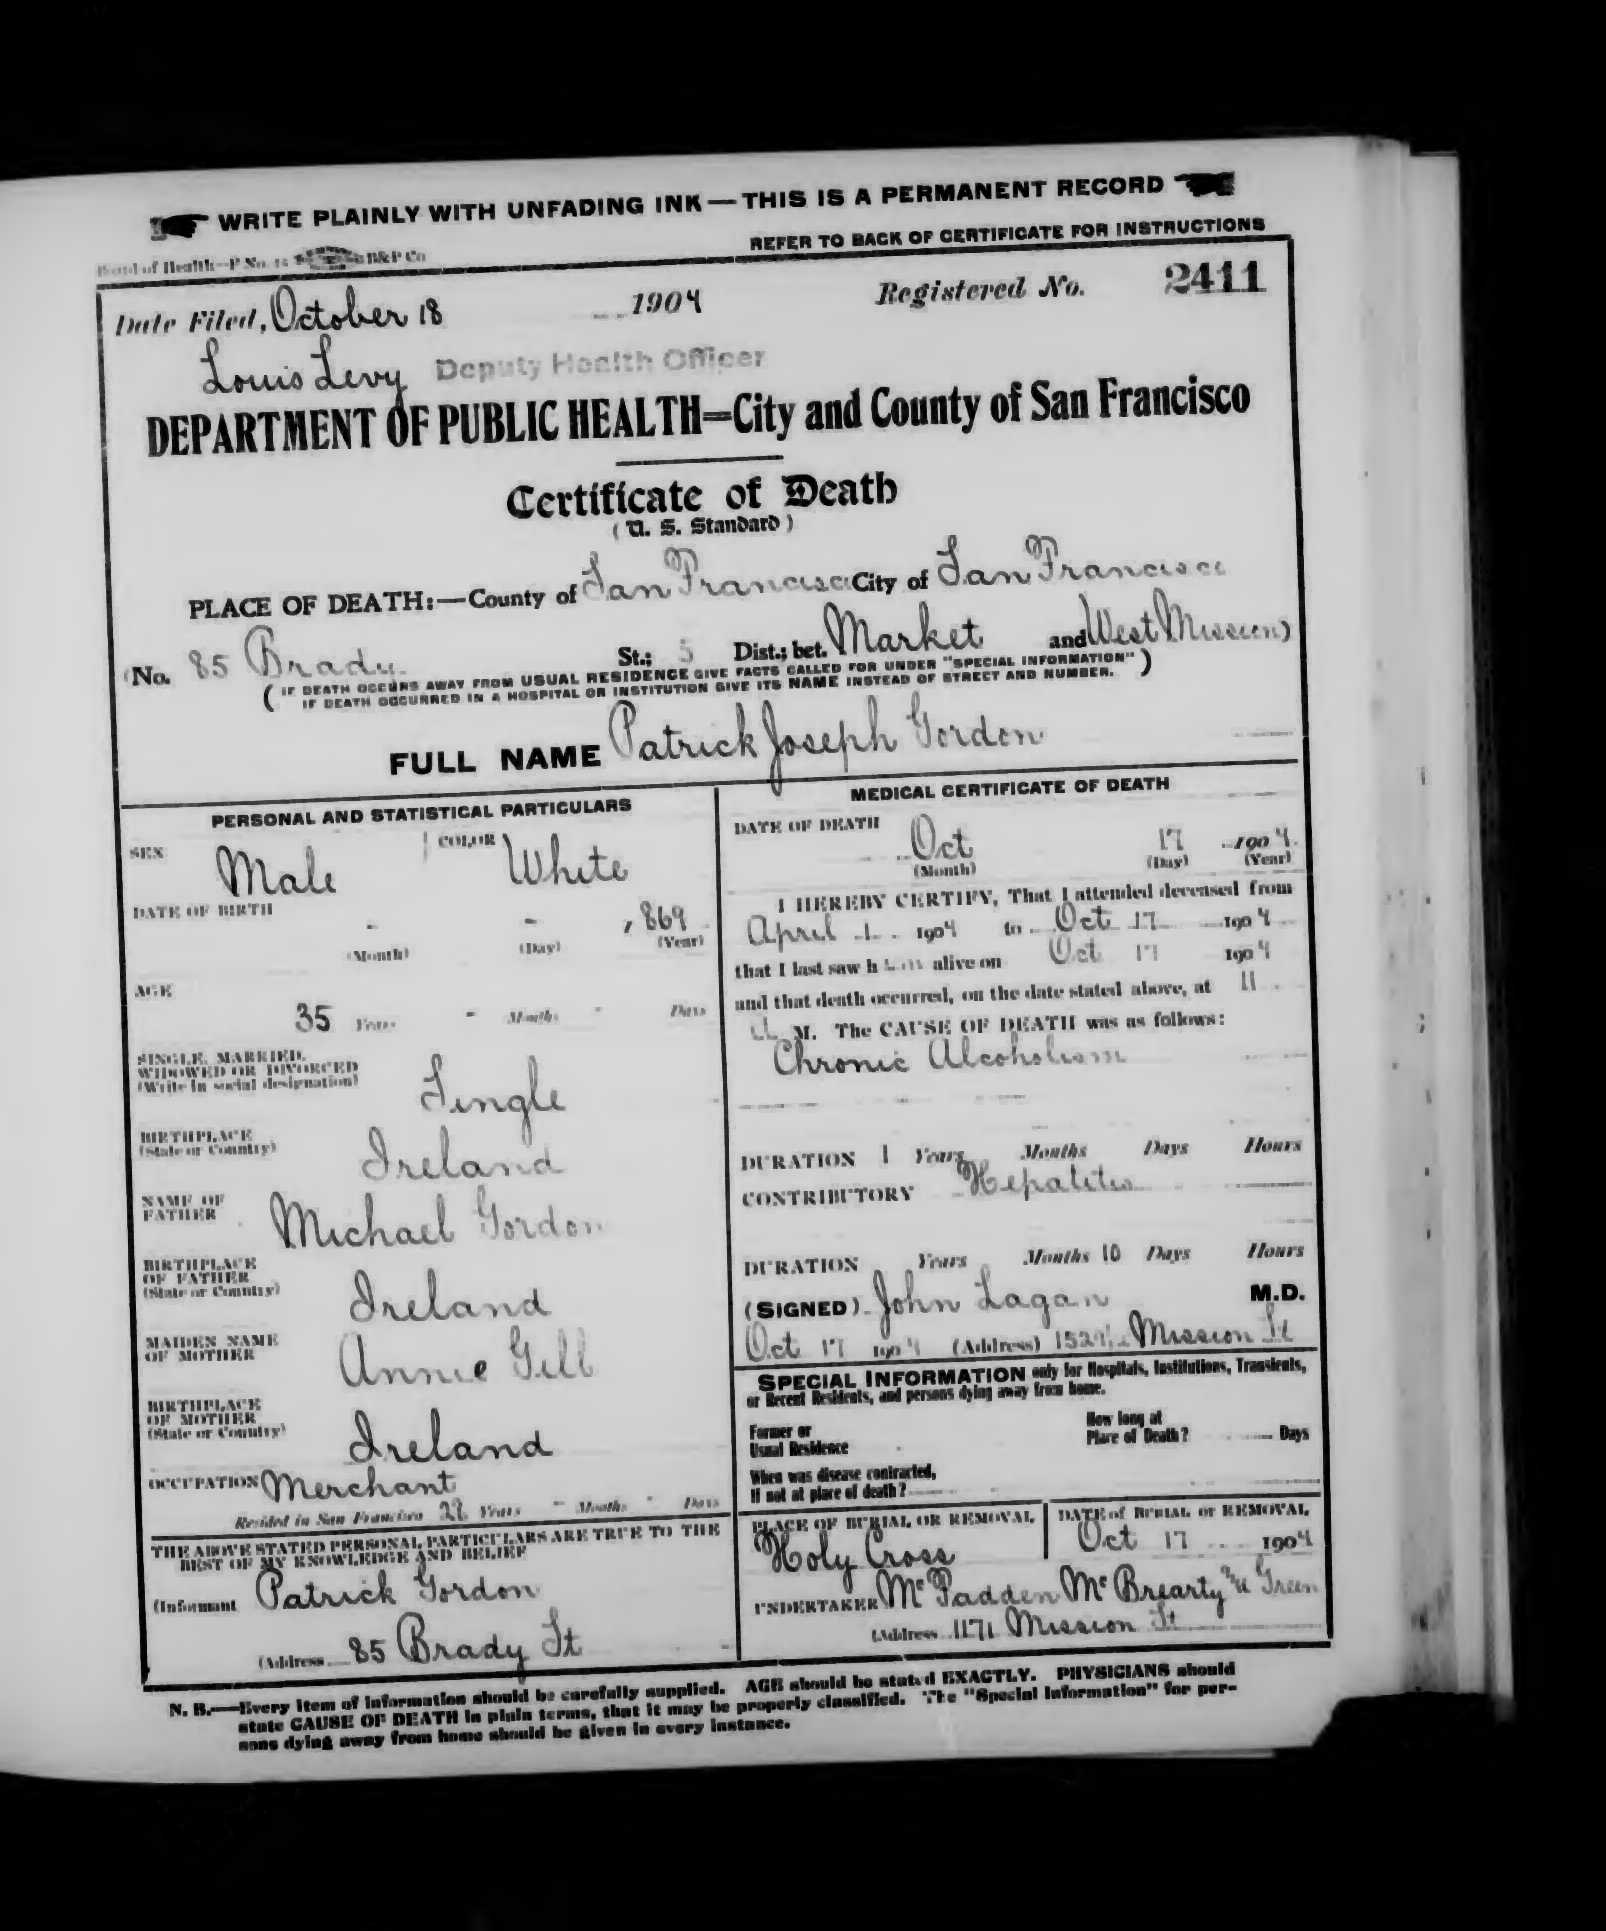 WRITE PLAINLY WITH UNFADING INK — THIS IS A PERMANENT RECORD
Board of Health—P No. 15 B&P Co
REFER TO BACK OF CERTIFICATE FOR INSTRUCTIONS
Date Filed, October 18 1904 Registered No. 2411
Louis Levy Deputy Health Officer
DEPARTMENT OF PUBLIC HEALTH=City and County of San Francisco
Certificate of Death
( U. S. Standard )
PLACE OF DEATH:—County of San Francisco City of San Francisco
(No. 85 Brady St.; 5 Dist.; bet. Market and West Mission)
( IF DEATH OCCURS AWAY FROM USUAL RESIDENCE GIVE FACTS CALLED FOR UNDER "SPECIAL INFORMATION" )
IF DEATH OCCURRED IN A HOSPITAL OR INSTITUTION GIVE ITS NAME INSTEAD OF STREET AND NUMBER.
FULL NAME Patrick Joseph Gordon
PERSONAL AND STATISTICAL PARTICULARS
SEX Male COLOR White
DATE OF BIRTH - - , 869
(Month) (Day) (Year)
AGE
35 Years - Months - Days
SINGLE, MARRIED,
WIDOWED OR DIVORCED
(Write in social designation) Single
BIRTHPLACE
(State or Country) Ireland
NAME OF
FATHER Michael Gordon
BIRTHPLACE
OF FATHER
(State or Country) Ireland
MAIDEN NAME
OF MOTHER Annie Gill
BIRTHPLACE
OF MOTHER
(State or Country) Ireland
OCCUPATION Merchant
Resided in San Francisco 22 Years - Months - Days
THE ABOVE STATED PERSONAL PARTICULARS ARE TRUE TO THE
BEST OF MY KNOWLEDGE AND BELIEF
(Informant Patrick Gordon
(Address 85 Brady St
MEDICAL CERTIFICATE OF DEATH
DATE OF DEATH
Oct 17 1904
(Month) (Day) (Year)
I HEREBY CERTIFY, That I attended deceased from
April 1 1904 to Oct 17 1904
that I last saw him alive on Oct 17 1904
and that death occurred, on the date stated above, at 11
a M. The CAUSE OF DEATH was as follows:
Chronic Alcoholism
DURATION 1 Years Months Days Hours
CONTRIBUTORY Hepatitis
DURATION Years Months 10 Days Hours
(SIGNED) John Lagan M.D.
Oct 17 1904 (Address) 1524½ Mission St
SPECIAL INFORMATION only for Hospitals, Institutions, Transients,
or Recent Residents, and persons dying away from home.
Former or
Usual Residence
How long at
Place of Death? Days
When was disease contracted,
If not at place of death?
PLACE OF BURIAL OR REMOVAL
Holy Cross
DATE of BURIAL or REMOVAL
Oct 17 1904
UNDERTAKER McPadden McBrearty & Green
(Address 1171 Mission St
N. B.—Every item of information should be carefully supplied. AGE should be stated EXACTLY. PHYSICIANS should
state CAUSE OF DEATH in plain terms, that it may be properly classified. The "Special Information" for per-
sons dying away from home should be given in every instance.